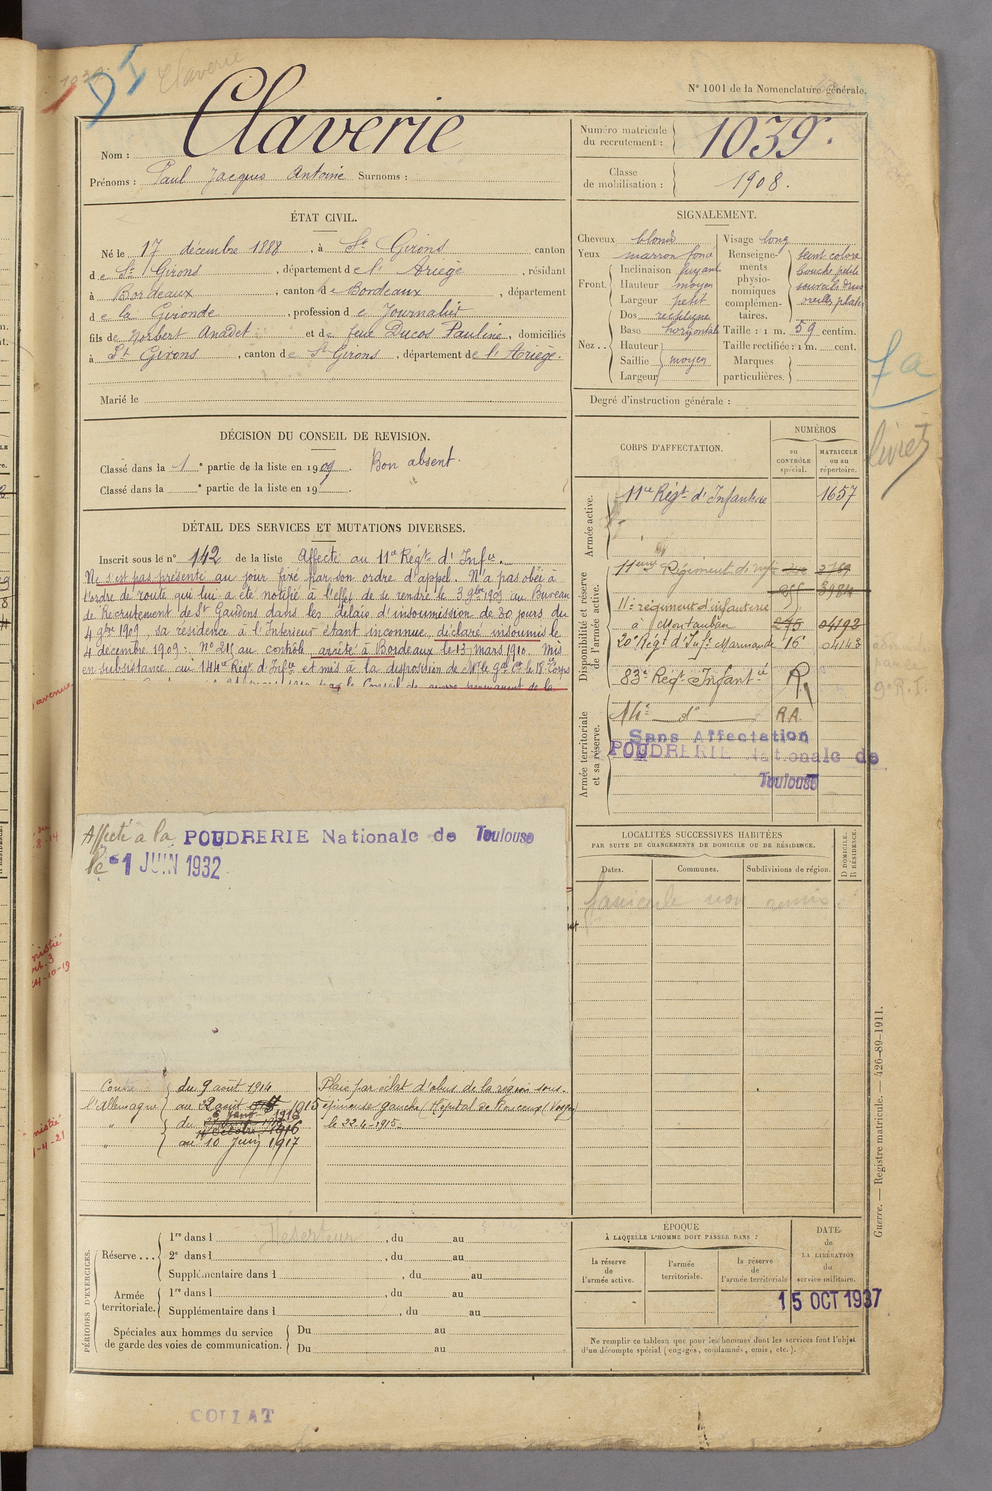 Claverie
N° 1001 de la Nomenclature générale.
Nom : Claverie
Prénoms : Paul Jacques Antoine Surnoms :
Numéro matricule du recrutement : 1039.
Classe de mobilisation : 1908.
ÉTAT CIVIL.
Né le 17 décembre 1888, à St Girons canton
de St Girons, département de l'Ariège, résidant
à Bordeaux, canton de Bordeaux, département
de la Gironde, profession de Journalier
fils de Norbert Anadet et de feue Ducos Pauline, domiciliés
à St Girons, canton de St Girons, département de l'Ariège.
Marié le
SIGNALEMENT.
Cheveux blond
Yeux marron foncé
Front. Inclinaison fuyant
Hauteur moyen
Largeur petit
Nez.. Dos rectiligne
Base horizontale
Hauteur
Saillie moyen
Largeur
Visage long
Renseignements physionomiques complémentaires. teint coloré
bouche petite
oreilles plates
Taille : 1 m. 59 centim.
Taille rectifiée : 1 m. cent.
Marques particulières.
Degré d'instruction générale :
DÉCISION DU CONSEIL DE REVISION.
Classé dans la 1e partie de la liste en 1909. Bon absent.
Classé dans la e partie de la liste en 19 .
DÉTAIL DES SERVICES ET MUTATIONS DIVERSES.
Inscrit sous le n° 142 de la liste Affecté au 11e Régt d'Infie.
Ne s'est pas présenté au jour fixé par son ordre d'appel. N'a pas obéi à
l'ordre de route qui lui a été notifié à l'effet de se rendre le 3 9bre 1909 au Bureau
de Recrutement de St Gaudens dans les délais d'insoumission de 30 jours du
4 9bre 1909, sa résidence à l'Intérieur étant inconnue, déclaré insoumis le
4 décembre 1909 : N° 211 au contrôle, arrêté à Bordeaux le 13 mars 1910. Mis
en subsistance au 144e Régt d'Infie et mis à la disposition de Mr le Gal Ct le 18e Corps
le Conseil de guerre permanent de la
Affecté à la POUDRERIE Nationale de Toulouse
le -1 JUIN 1932
Contre l'Allemagne
du 9 août 1914
au 22 août 1915
du 6 janv 1916
au 10 Juin 1917
Plaie par éclat d'obus de la région sous-
épineuse gauche (Hôpital de Ronchamp (Vosges)
le 22-4-1915.
CORPS D'AFFECTATION.
NUMÉROS
au CONTRÔLE spécial.
MATRICULE ou au répertoire.
Armée active.
11e Régt d'Infanterie 1657
Disponibilité et réserve de l'armée active.
11eme Régiment d'inf
11e régiment d'infanterie
à Montauban 04192
20e Régt d'Inf. Marmande 16 04143
83e Régt Infantie R
Armée territoriale et sa réserve.
14e d° R.A.
Sans Affectation
POUDRERIE Nationale de
Toulouse
LOCALITÉS SUCCESSIVES HABITÉES
PAR SUITE DE CHANGEMENTS DE DOMICILE OU DE RÉSIDENCE.
Dates. Communes. Subdivisions de région.
D DOMICILE.
R RÉSIDENCE.
fascicule non remis
livret
9e R.I.
PÉRIODES D'EXERCICES.
Réserve ... 1re dans l , du au
2e dans l , du au
Supplémentaire dans l , du au
Armée territoriale. 1re dans l , du au
Supplémentaire dans l , du au
Spéciales aux hommes du service de garde des voies de communication. Du au
Du au
Déserteur
ÉPOQUE
À LAQUELLE L'HOMME DOIT PASSER DANS :
la réserve de l'armée active.
l'armée territoriale.
la réserve de l'armée territoriale
DATE
de
LA LIBÉRATION
du
service militaire.
15 OCT 1937
Ne remplir ce tableau que pour les hommes dont les services font l'objet
d'un décompte spécial (engagés, condamnés, omis, etc.).
Guerre. — Registre matricule. — 426-89-1911.
COLLAT